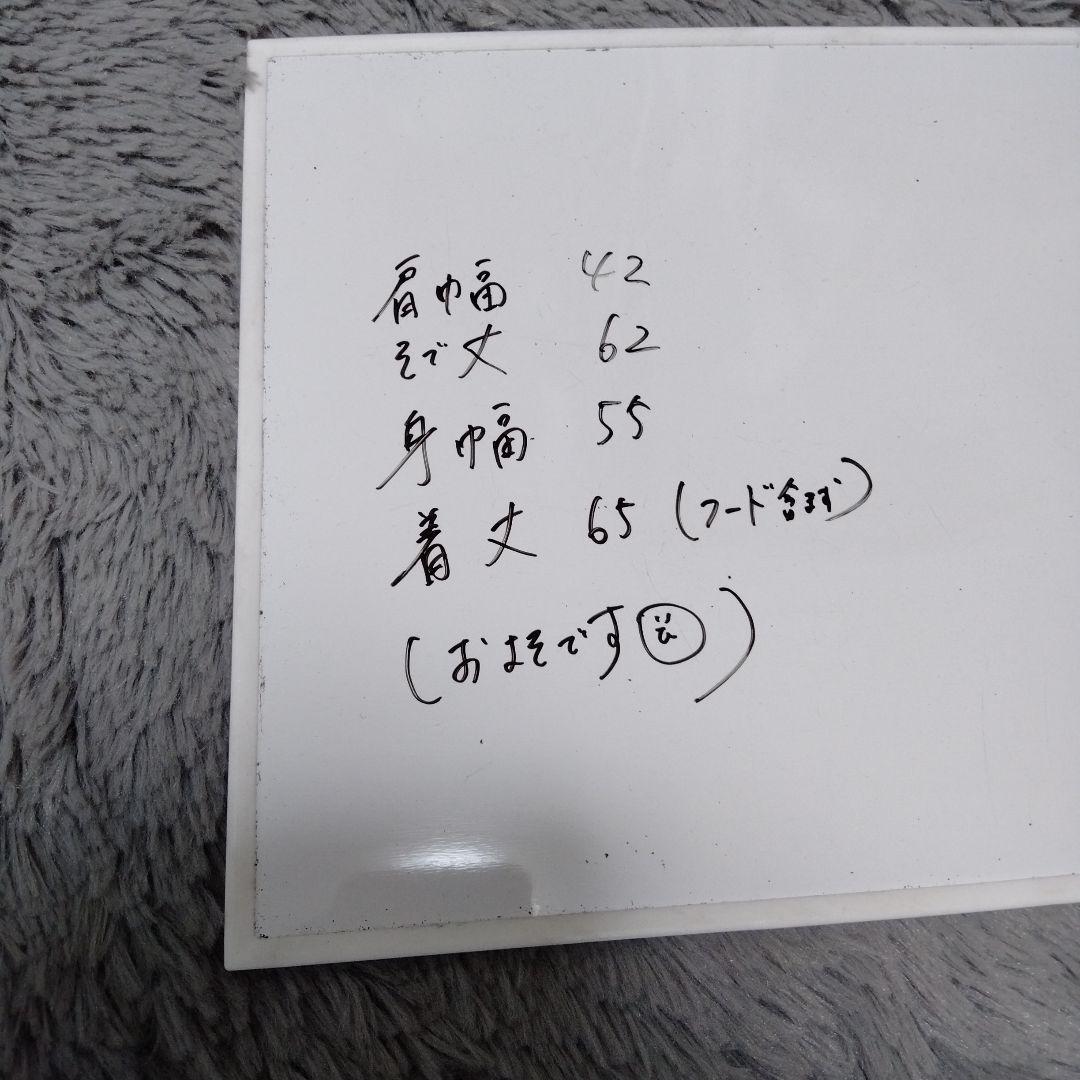 肩巾幅 42
そで丈 62
身巾幅 55
着丈 65 (フード含まず)
(およそです)